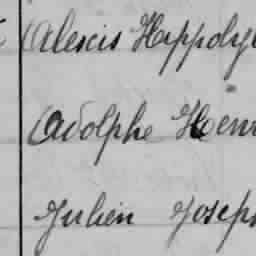 Alexis Hippoly
Adolphe Henr
Julien Joseph